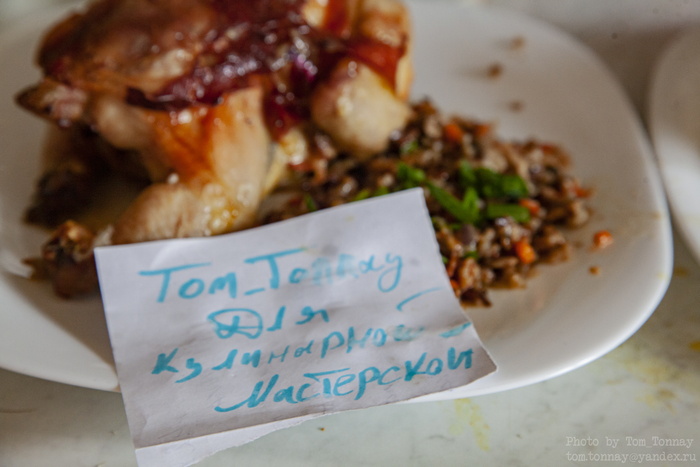 Tom_Tonnay
Для
кулинарной
Мастерской
Photo by Tom Tonnay
tomtonnay@yandex.ru